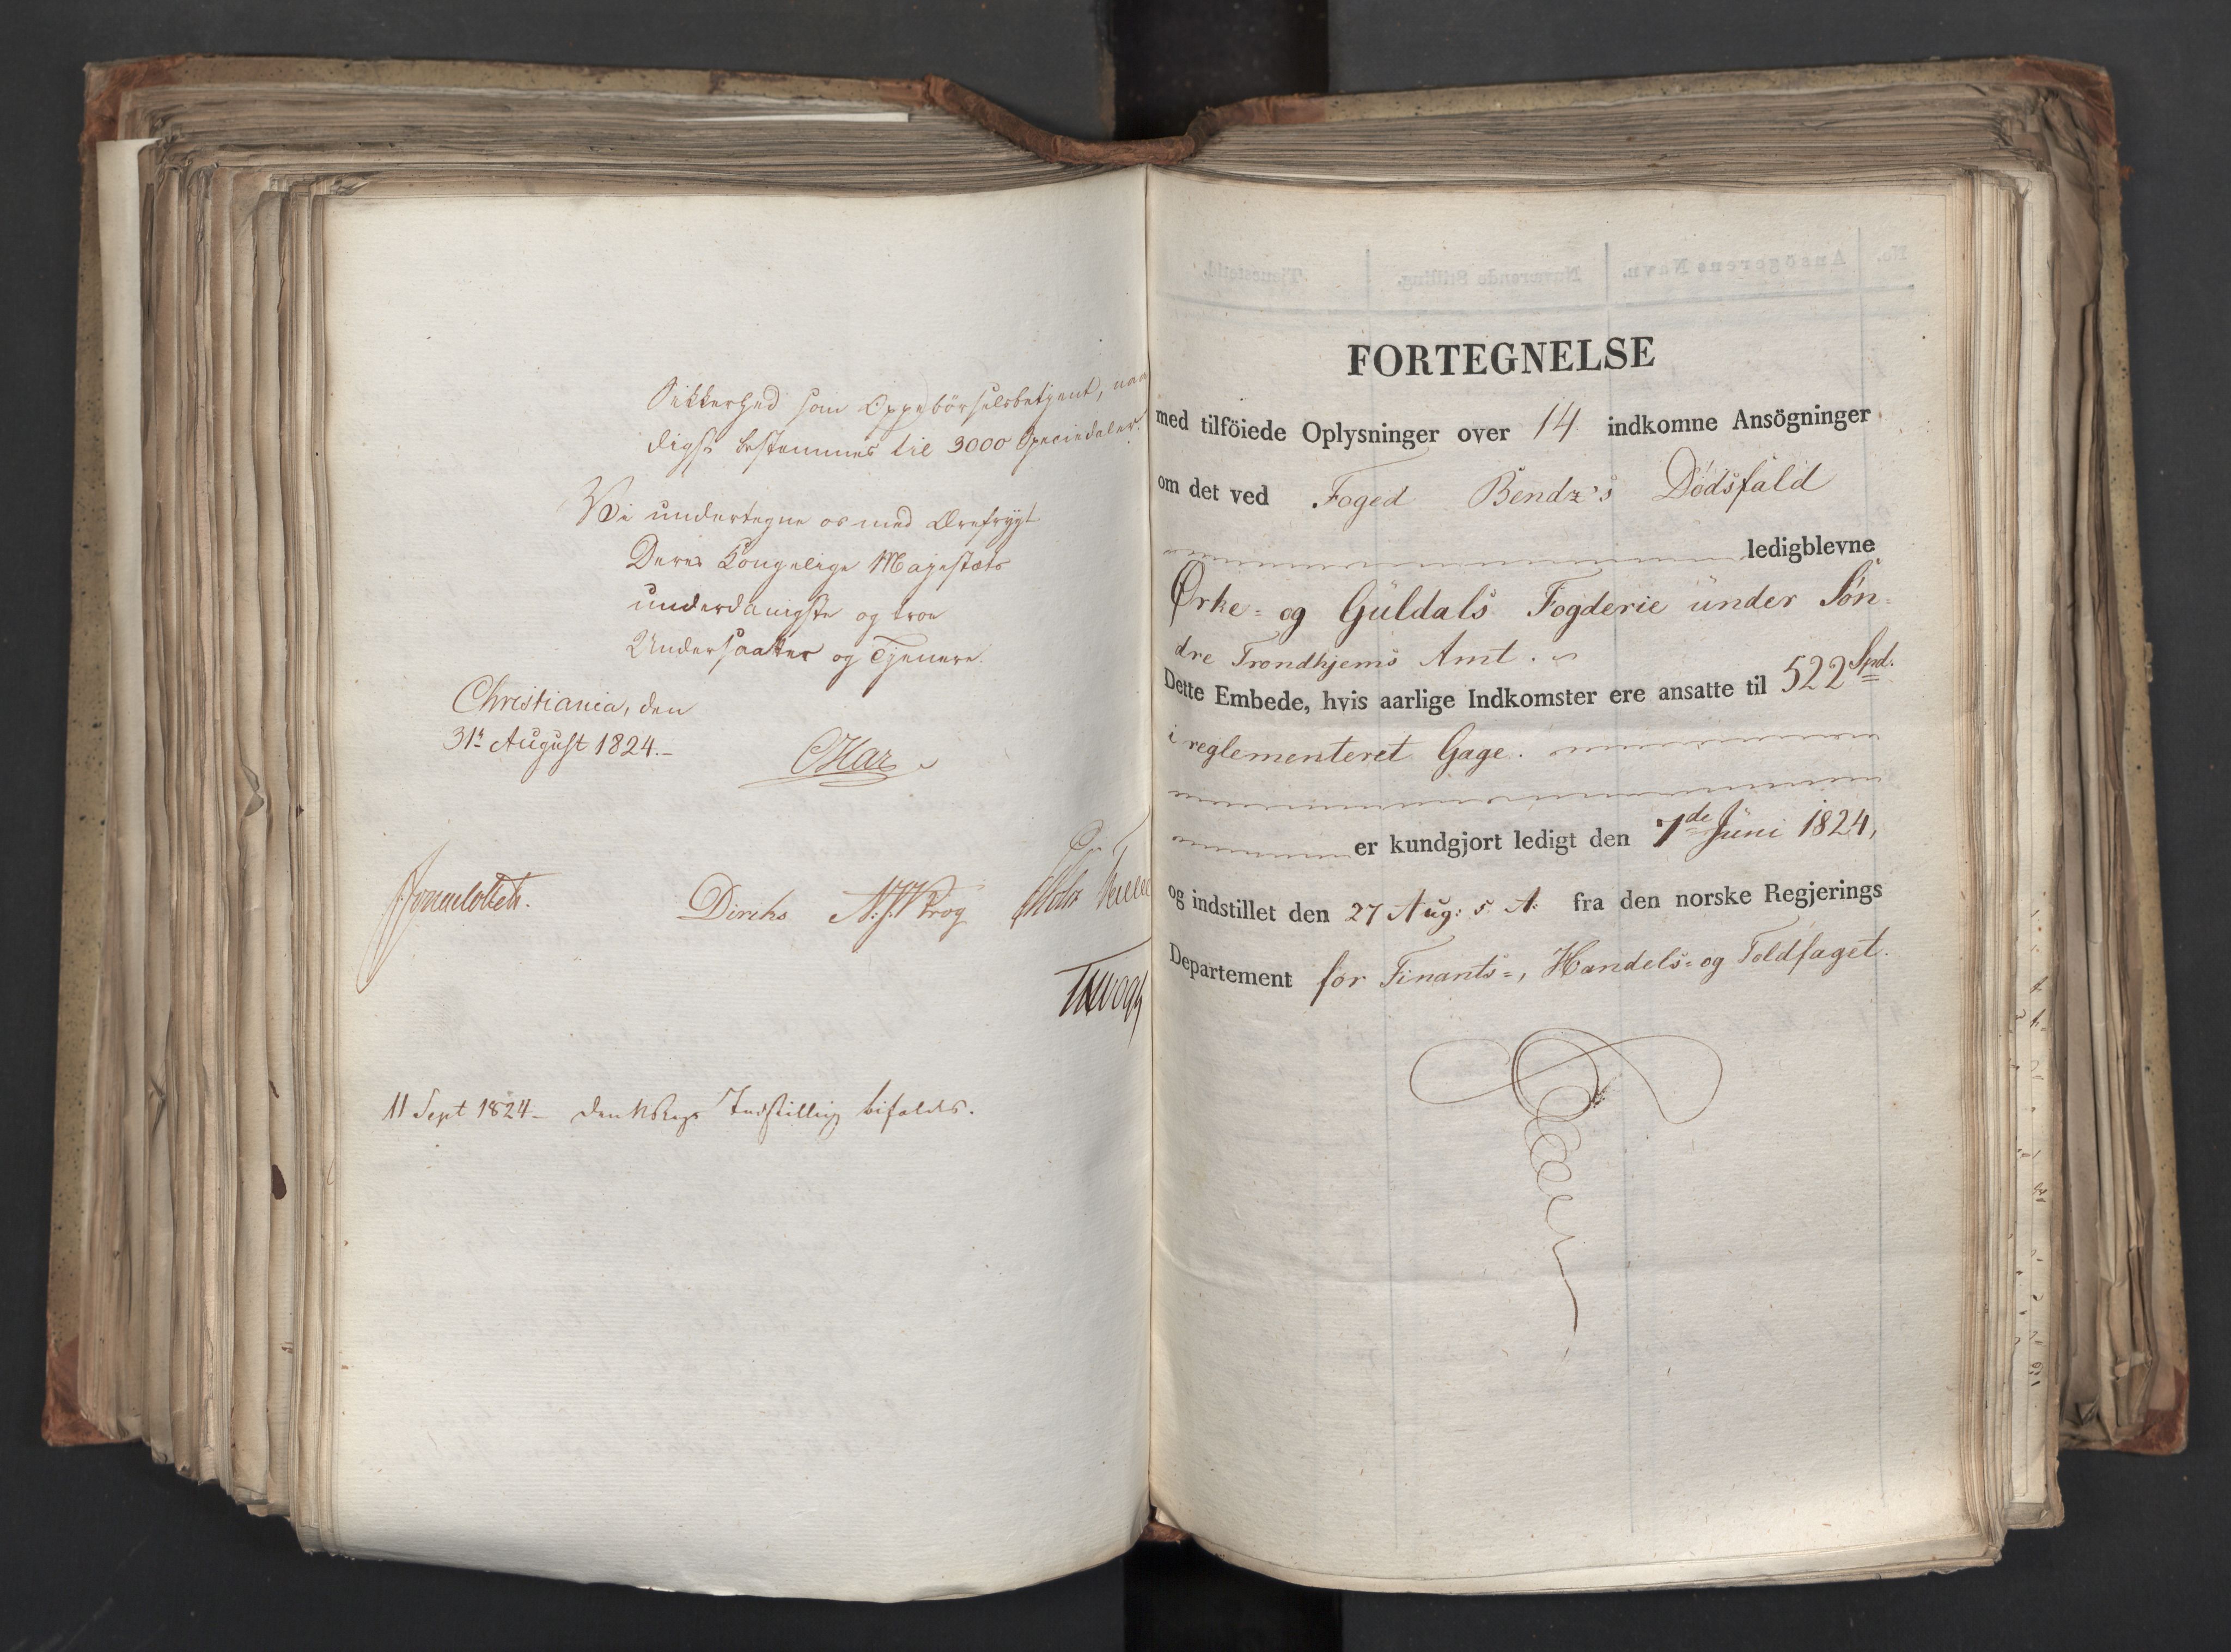 Sikkerhed som Oppebörselsbetjent, naa
digst bestemmes til 3000 Speciedaler.
Vi undertegne os med Ærefrygt
Deres Kongelige Majestæts
underdanigste og troe
Undersaatter og Tjenere.
Christiania, den
31te August 1824.-
Oscar
Sommerhielm.
Diriks N. J. Krog
11 Sept 1824 - den Norske Regs Indstilling bifaldes.
FORTEGNELSE
med tilföiede Oplysninger over 14 indkomne Ansögninger
om det ved Foged Bendz's Dödsfald
ledigblevne
Ørke- og Guldals Fogderie under Søn-
dre Trondhjems Amt.
Dette Embede, hvis aarlige Indkomster ere ansatte til 522 Spd.
i reglementeret Gage.
er kundgjort ledigt den 7de Juni 1824,
og indstillet den 27 Aug: s. A: fra den norske Regjerings
Departement for Finants-, Handels- og Toldfaget.